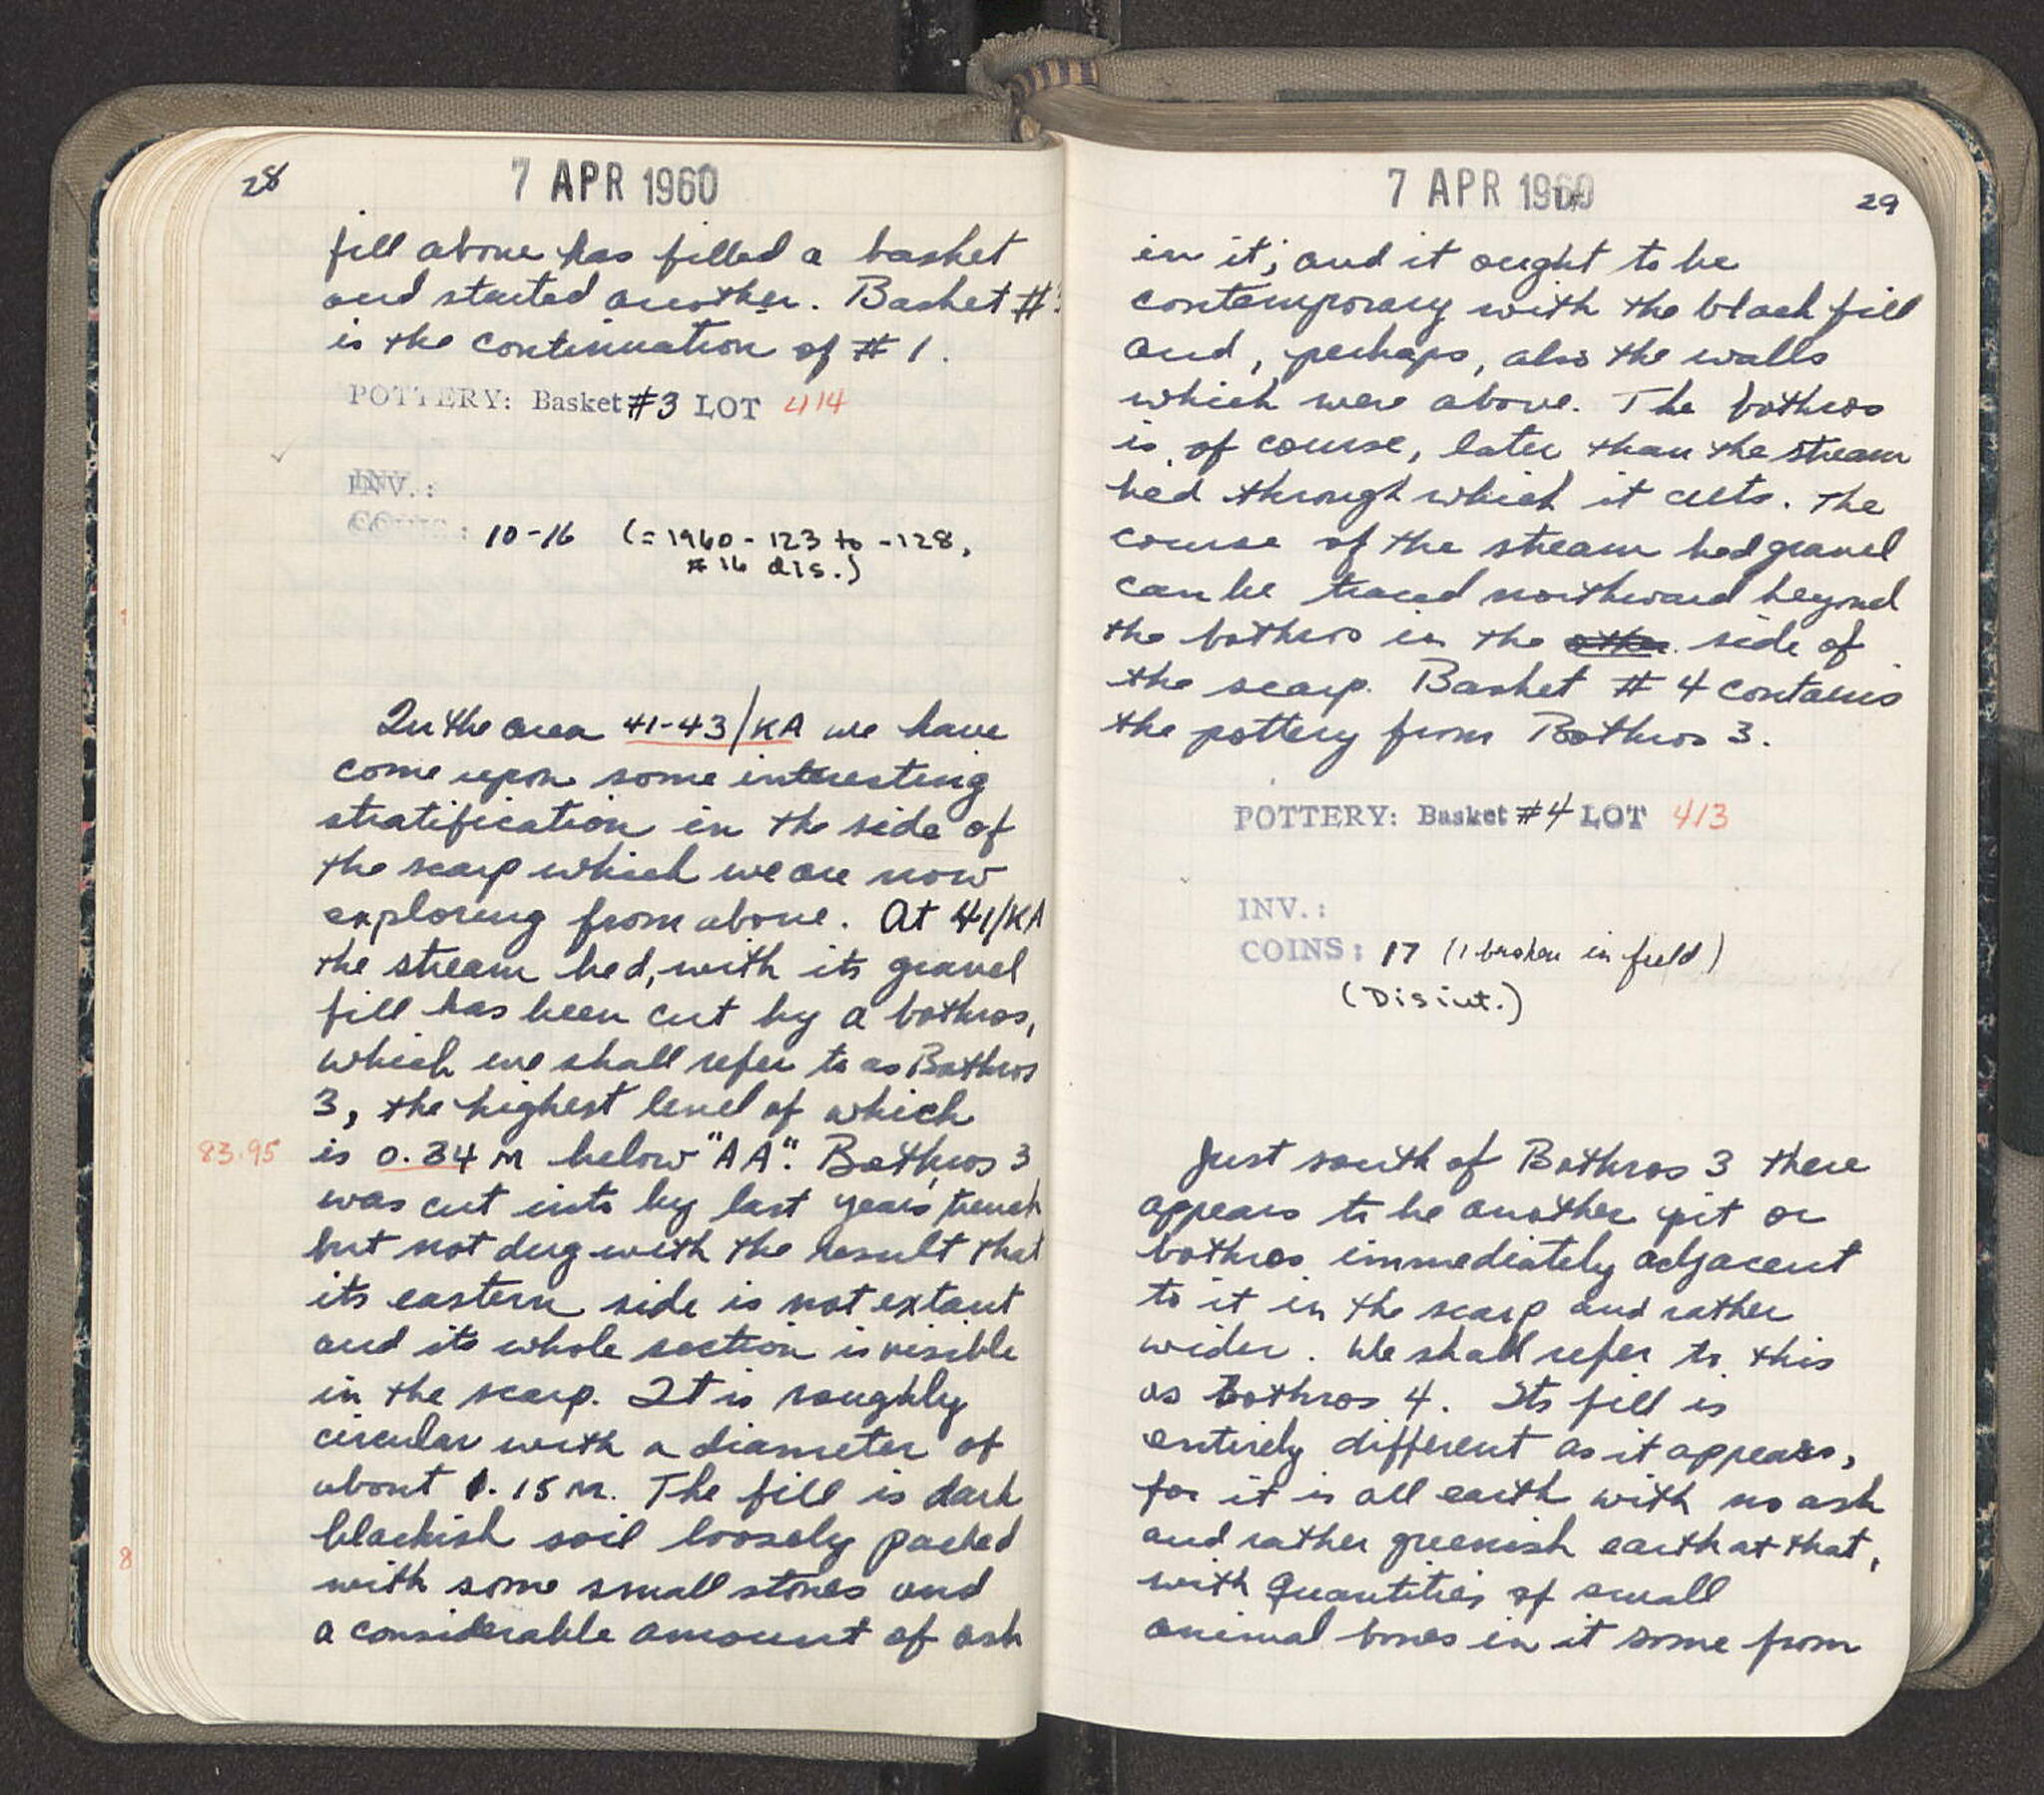 28
7 APR 1960
fill above has filled a basket
and started another. Basket #3
is the continuation of # 1.
POTTERY: Basket #3 LOT 414
INV.:
COINS: 10-16 (= 1960 - 123 to -128,
# 16 dis.)
In the area 41-43/KA we have
come upon some interesting
stratification in the side of
the scarp which we are now
exploring from above. At 41/KA
the stream bed, with its gravel
fill has been cut by a bothros,
which we shall refer to as Bothros
3, the highest level of which
83.95 is 0.34 m below "AA". Bothros 3
was cut into by last year's trench
but not dug with the result that
its eastern side is not extant
and its whole section is visible
in the scarp. It is roughly
circular with a diameter of
about 1.15 m. The fill is dark
blackish soil loosely packed
8
with some small stones and
a considerable amount of ash
7 APR 1960
29
in it; and it ought to be
contemporary with the black fill
and, perhaps, also the walls
which were above. The bothros
is, of course, later than the stream
bed through which it cuts. The
course of the stream bed gravel
can be traced northward beyond
the bothros in the other side of
the scarp. Basket # 4 contains
the pottery from Bothros 3.
POTTERY: Basket #4 LOT 413
INV.:
COINS: 17 (1 broken in field)
(Disint.)
Just south of Bothros 3 there
appears to be another pit or
bothros immediately adjacent
to it in the scarp and rather
wider. We shall refer to this
as Bothros 4. Its fill is
entirely different as it appears,
for it is all earth with no ash
and rather greenish earth at that,
with quantities of small
animal bones in it some from